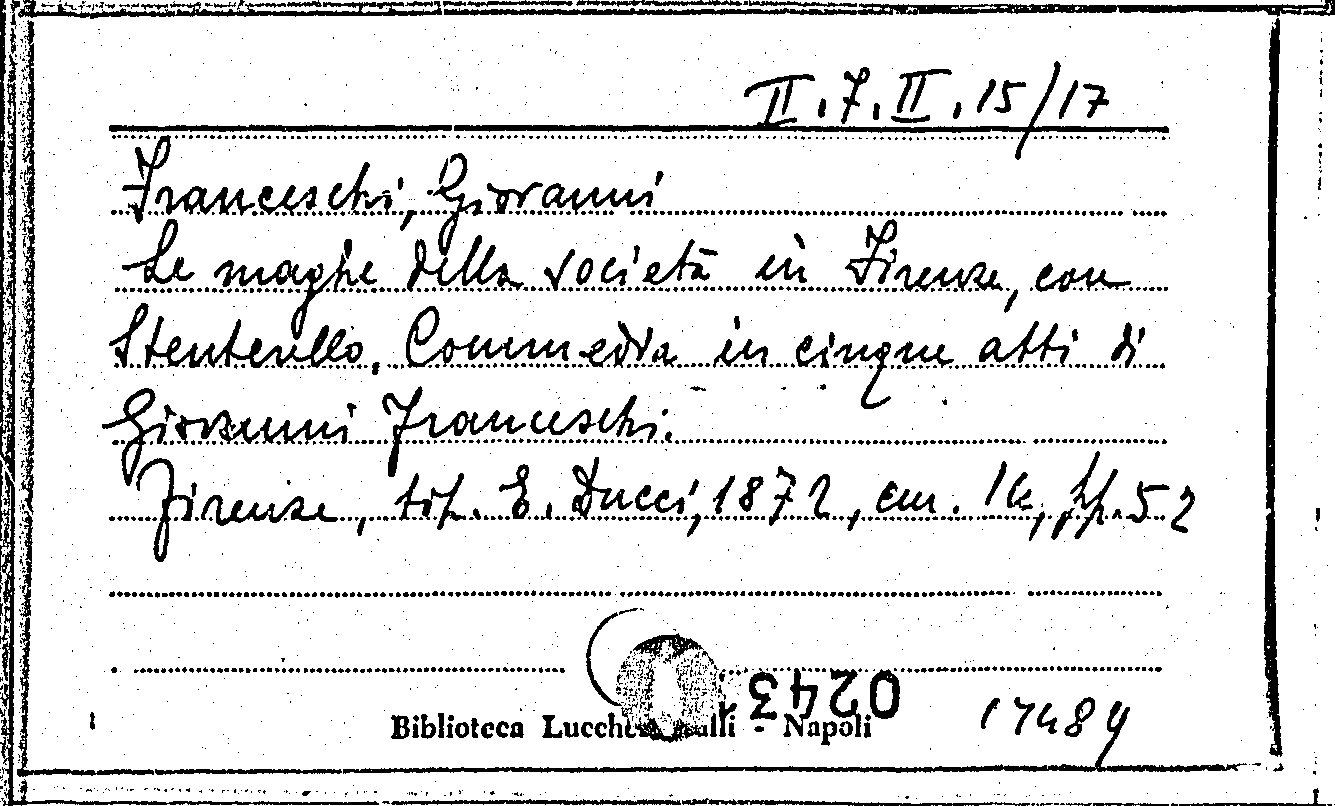 II.7.II.15/17
Franceschi, Giovanni
Le maghe della società in Firenze, con
Stenterello. Commedia in cinque atti di
Giovanni Franceschi.
Firenze, tip. E. Ducci, 1872, cm. 14, pp. 52
0243
Biblioteca - Napoli
17489